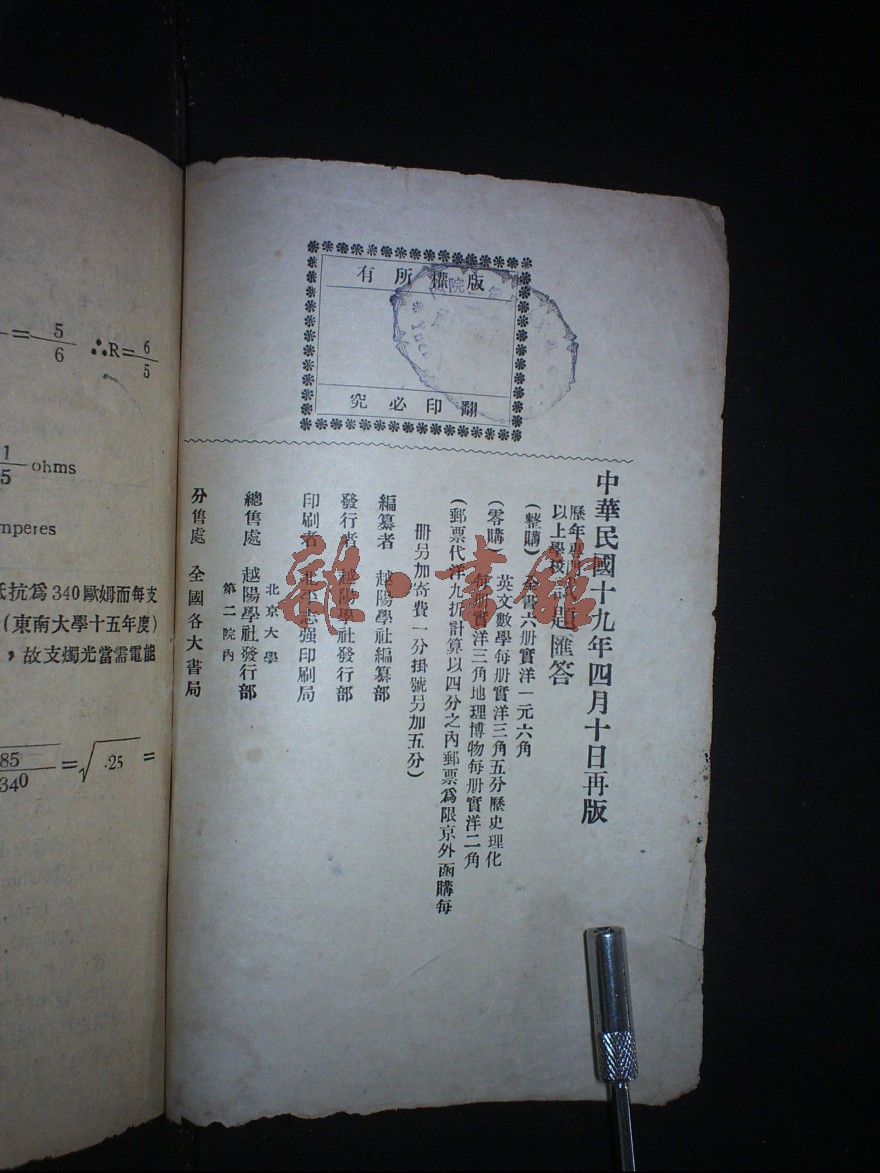 版權所有
翻印必究
中華民國十九年四月十日再版
歷年專門
以上學校試題匯答
(整購) 全書六册實洋一元六角
(零購) 英文數學每册實洋三角五分歷史理化
每册實洋三角地理博物每册實洋二角
(郵票代洋九折計算以四分之內郵票爲限京外函購每
册另加寄費一分掛號另加五分)
編纂者 越陽學社編纂部
發行者 越陽學社發行部
印刷者 北平志强印刷局
北京大學
第二院內
總售處 越陽學社發行部
分售處 全國各大書局
雜·書館
= 5/6 ∴R= 6/5
1/5 ohms
mperes
抗爲340歐姆而每支
(東南大學十五年度)
,故支燭光當需電能
85/340 = √.25 =